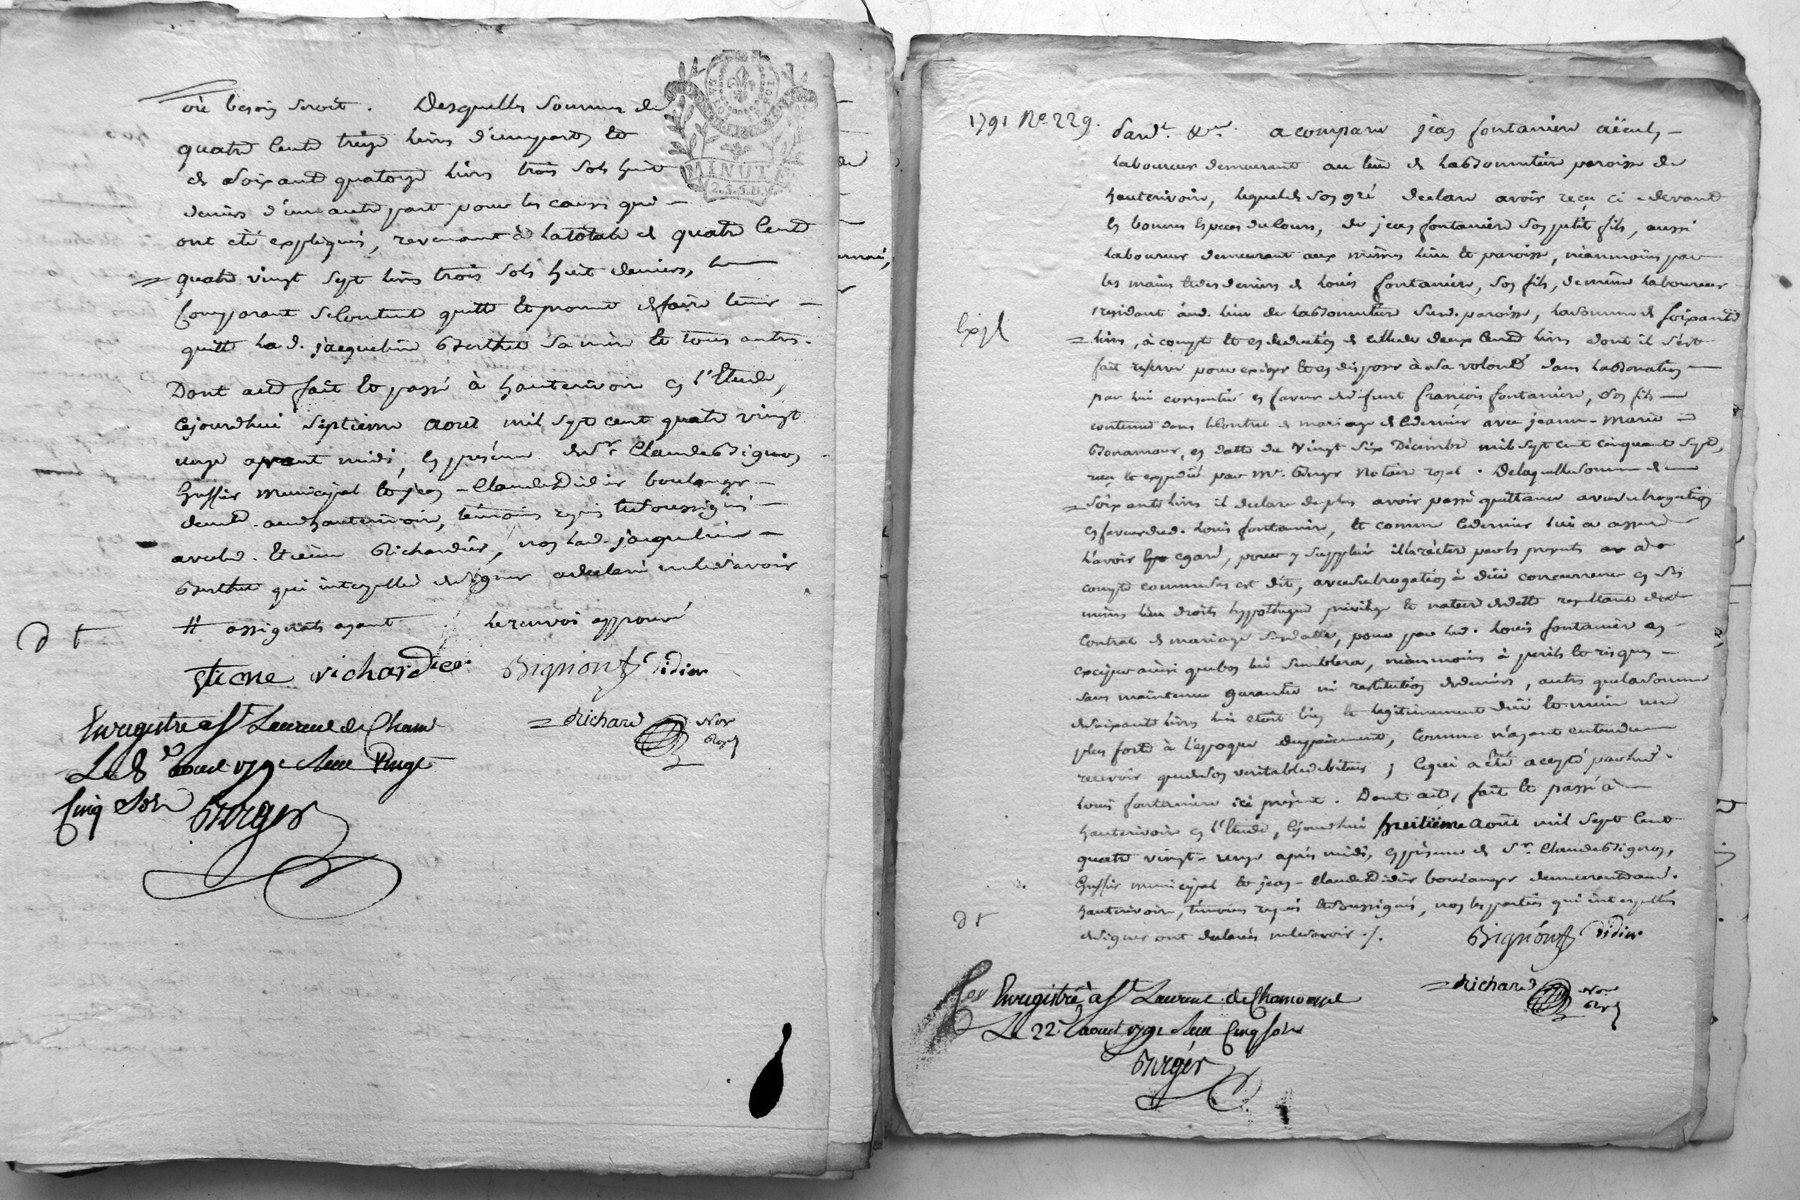 où besoin seroit. Desquelles sommes de
quatre cents treize livres d'une part et
de soixante quatorze livres trois sols huit
deniers d'une autre part pour les causes qui
ont été expliqués, revenant à la totale de quatre cent
quatre vingt sept livres trois sols huit deniers, le
comparant se contente quitte et promet de faire tenir
quitte lad. jacqueline Berthet sa mère et tous autres.
Dont acte fait et passé à hauterivoire en l'Etude,
cejourdhui septieme aout mil sept cent quatre vingt
onze avant midi, en présence de Sr. Claude Bignon
Greffier municipal et jean-Claude Didier boulanger
demt. aud. hauterivoire, témoins requis et soussignés
avec led. Etienne Richardier, non lad. jacqueline
Berthet qui interpellée de signer a declaré ne le savoir
# assignats ayant le renvoi approuvé
d t
Bignon Didier
MINUTE
Richard Not. Roy.
Enregistré a St. Laurent de Cham.
Le 8 aout 1791 Recu Vingt
Cinq Sols
Burger
1791 No. 229.
Pard. &. a comparu jean fontaniere aïeul,
laboureur demeurant au lieu de paroisse de
hauterivoire, lequel de son gré declare avoir reçu ci-devant
en bonnes especes du cours, de jean fontaniere son petit fils, aussi
laboureur demeurant aux mêmes lieu et paroisse, néanmoins par
les mains et des deniers de louis fontaniere, son fils, de même laboureur
residant aud. lieu de susd. paroisse, la somme de soixante
Expé
livres, à compte et en deduction de celle de deux cents livres dont il s'est
fait reserve pour exiger et en disposer à sa volonté dans la donation
par lui consentie en faveur de defunt françois fontaniere, son fils
contenue dans le contrat de mariage de ce dernier avec jeanne-Marie
Bonamour, en datte du Vingt Six Décembre mil sept cent cinquante sept,
reçu et expedié par Me. Notaire royal. De laquelle somme de
soixante livres il declare de plus avoir passé quittance avec subrogation
en faveur dud. louis fontaniere, et comme ce dernier lui a assuré
l'avoir egaré, pour y suppléer il la réitere par les presentes
compte comme dessus est dit, avec subrogation à due concurrence en ses
mêmes lieu droits hypotheque privilege et nature de dette resultante dud.
Contrat de mariage susdatté, pour par led. louis fontaniere en
exciper ainsi que bon lui semblera, néanmoins à perils et risques
sans maintenue garantie ni restitution de deniers, autres que la somme
de soixante livres lui etoit bien et legitimement due et même une
plus forte à l'epoque du payement, comme n'ayant entendu
recevoir que de son veritable debiteur; ce qui a été acepté par led.
louis fontaniere ici présent. Dont acte, fait et passé à
hauterivoire en l'Etude, cejourdhui huitième aout mil sept cent
quatre vingt-onze après midi, en présence de Sr. Claude Bignon,
Greffier municipal et jean-Claude Didier boulanger demeurant aud.
hauterivoire, témoins requis et soussignés, non les parties qui interpellées
de signer ont declarés ne le savoir ./.
d t
Bignon Didier
Richard Not. Roy.
Enregistré à St. Laurent de Chamousset
Le 22 aout 1791 Recu Cinq Sols
Burger